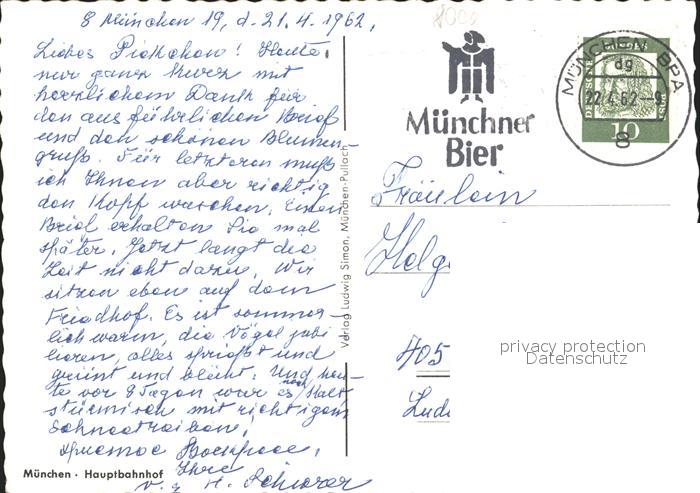 8 München 19, d. 21.4.1962.
Liebes Piekchen! Heute
nur ganz kurz mit
herzlichem Dank für
den ausführlichen Brief
und den schönen Blumen-
gruß. Für letzteren muß
ich Ihnen aber richtig
den Kopf waschen. Einen
Brief erhalten Sie mal
später. Jetzt langt die
Zeit nicht dazu. Wir
sitzen eben auf dem
Friedhof. Es ist sommer-
lich warm, die Vögel jubi-
lieren, alles sprießt und
grünt und blüht. Und heu-
te vor 8 Tagen war es noch kalt
stürmisch mit richtigem
Schneetreiben.
Христос Воскресе,
Ihre
München · Hauptbahnhof
Verlag Ludwig Simon, München-Pullach
Münchner
Bier
MÜNCHEN BPA
dg
22.4.62--9
8
10
Fräulein
Helg
405
Lud
privacy protection
Datenschutz